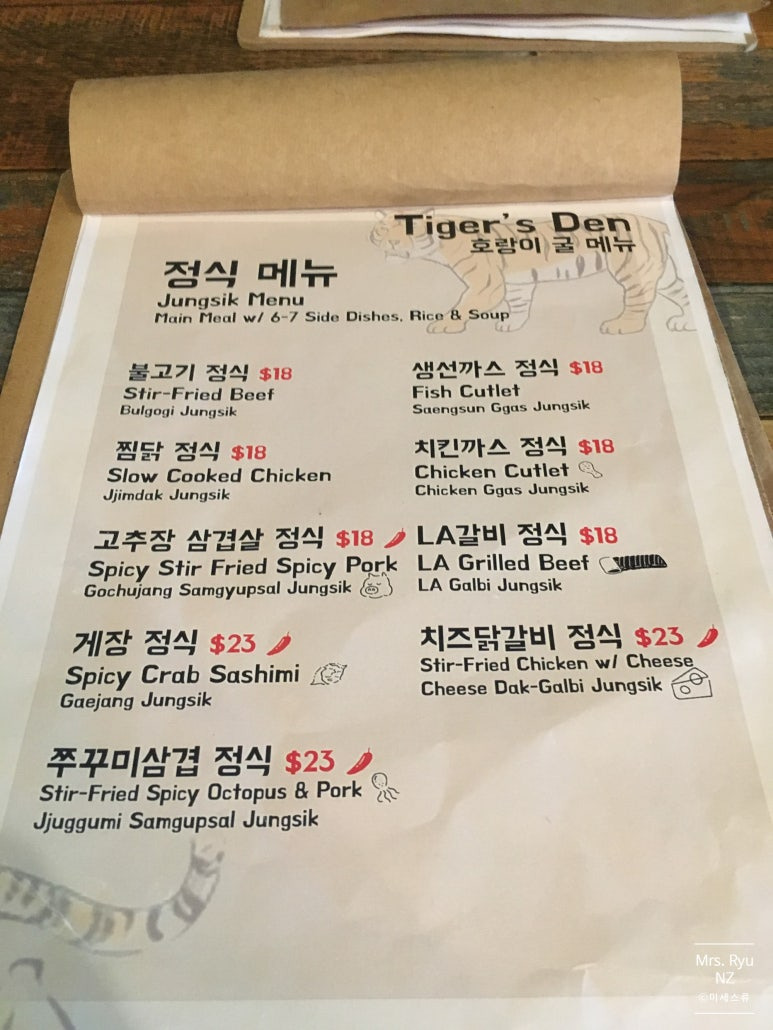 Tiger's Den
호랑이 굴 메뉴
정식 메뉴
Jungsik Menu
Main Meal w/ 6-7 Side Dishes, Rice & Soup
불고기 정식 $18
Stir-Fried Beef
Bulgogi Jungsik
찜닭 정식 $18
Slow Cooked Chicken
Jjimdak Jungsik
고추장 삼겹살 정식 $18
Spicy Stir Fried Spicy Pork
Gochujang Samgyupsal Jungsik
게장 정식 $23
Spicy Crab Sashimi
Gaejang Jungsik
쭈꾸미삼겹 정식 $23
Stir-Fried Spicy Octopus & Pork
Jjuggumi Samgupsal Jungsik
생선까스 정식 $18
Fish Cutlet
Saengsun Ggas Jungsik
치킨까스 정식 $18
Chicken Cutlet
Chicken Ggas Jungsik
LA갈비 정식 $18
LA Grilled Beef
LA Galbi Jungsik
치즈닭갈비 정식 $23
Stir-Fried Chicken w/ Cheese
Cheese Dak-Galbi Jungsik
Mrs. Ryu
NZ
©미세스류